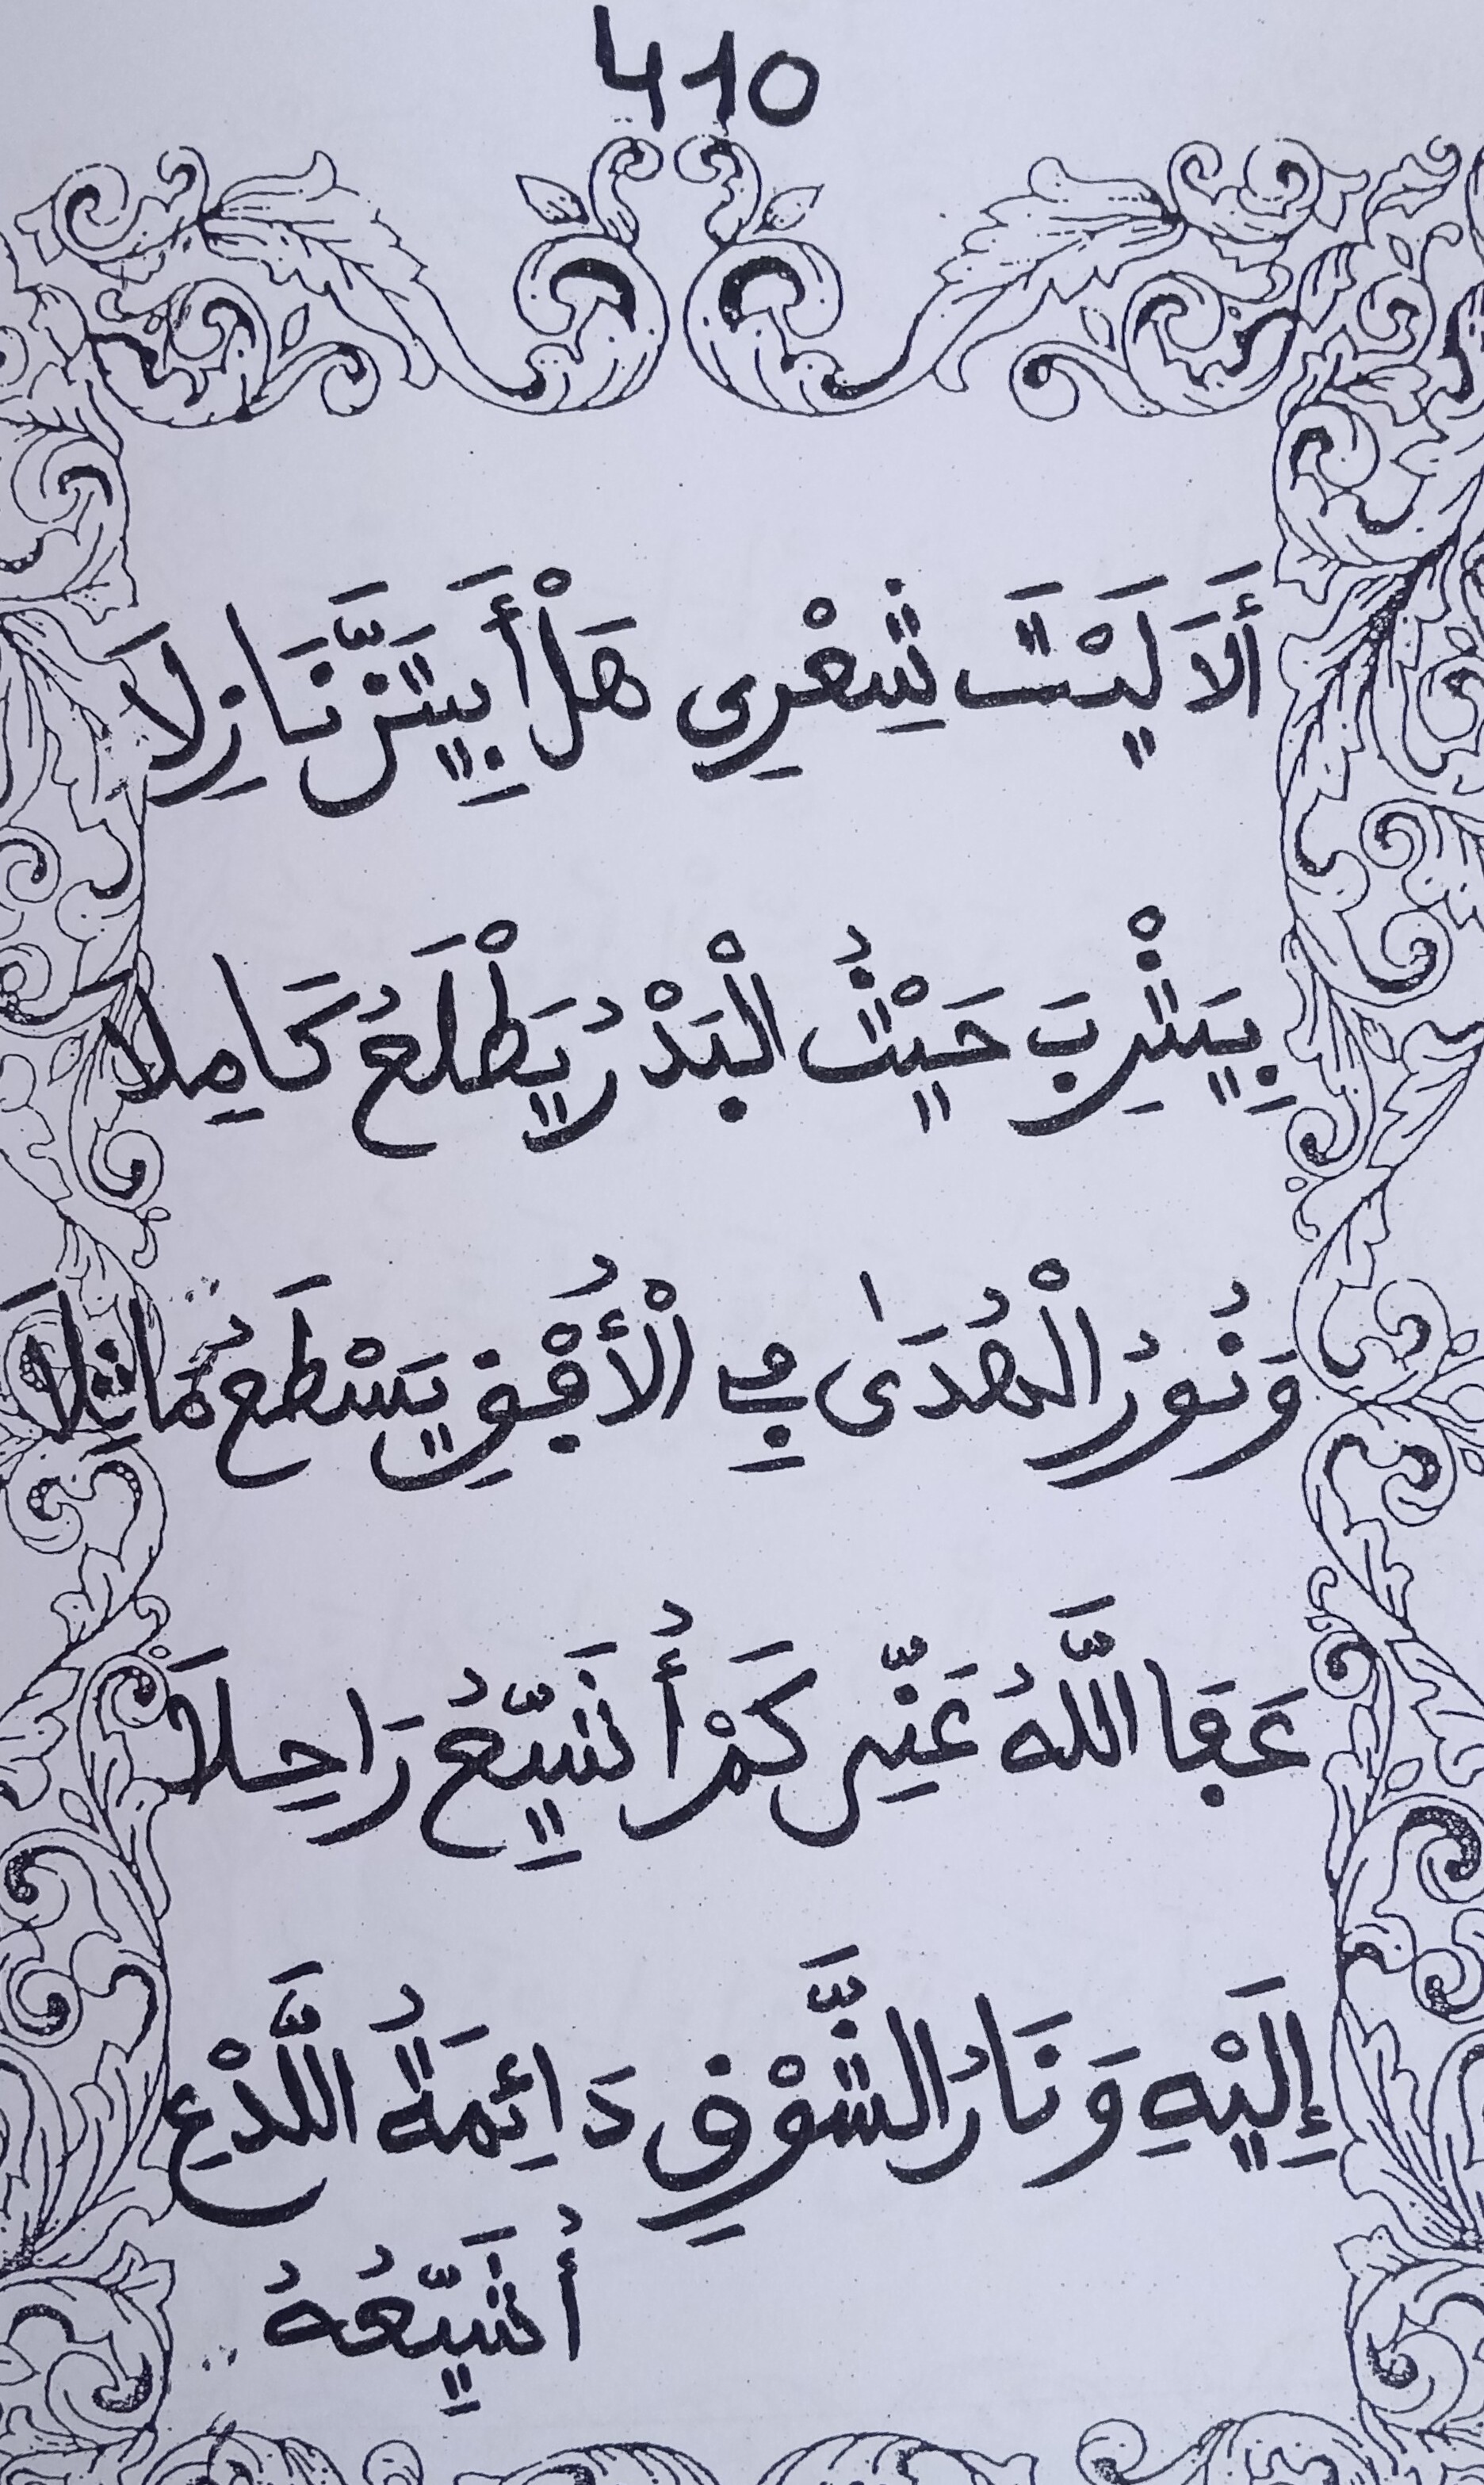 410
أَلَا لَيْتَ شِعْرِي هَلْ أَبِيتَنَّ نَازِلَا
بِيَثْرِبَ حَيْثُ الْبَدْرُ يَطْلَعُ كَامِلَا
وَنُورُ الْهُدَىٰ فِي الْأُفْقِ يَسْطَعُ مَاثِلَا
عَفَا اللَّهُ عَنِّي كَمْ أُشَيِّعُ رَاحِلَا
إِلَيْهِ وَنَارُ الشَّوْقِ دَائِمَةُ اللَّدْعِ
أُشَيِّعُهُ